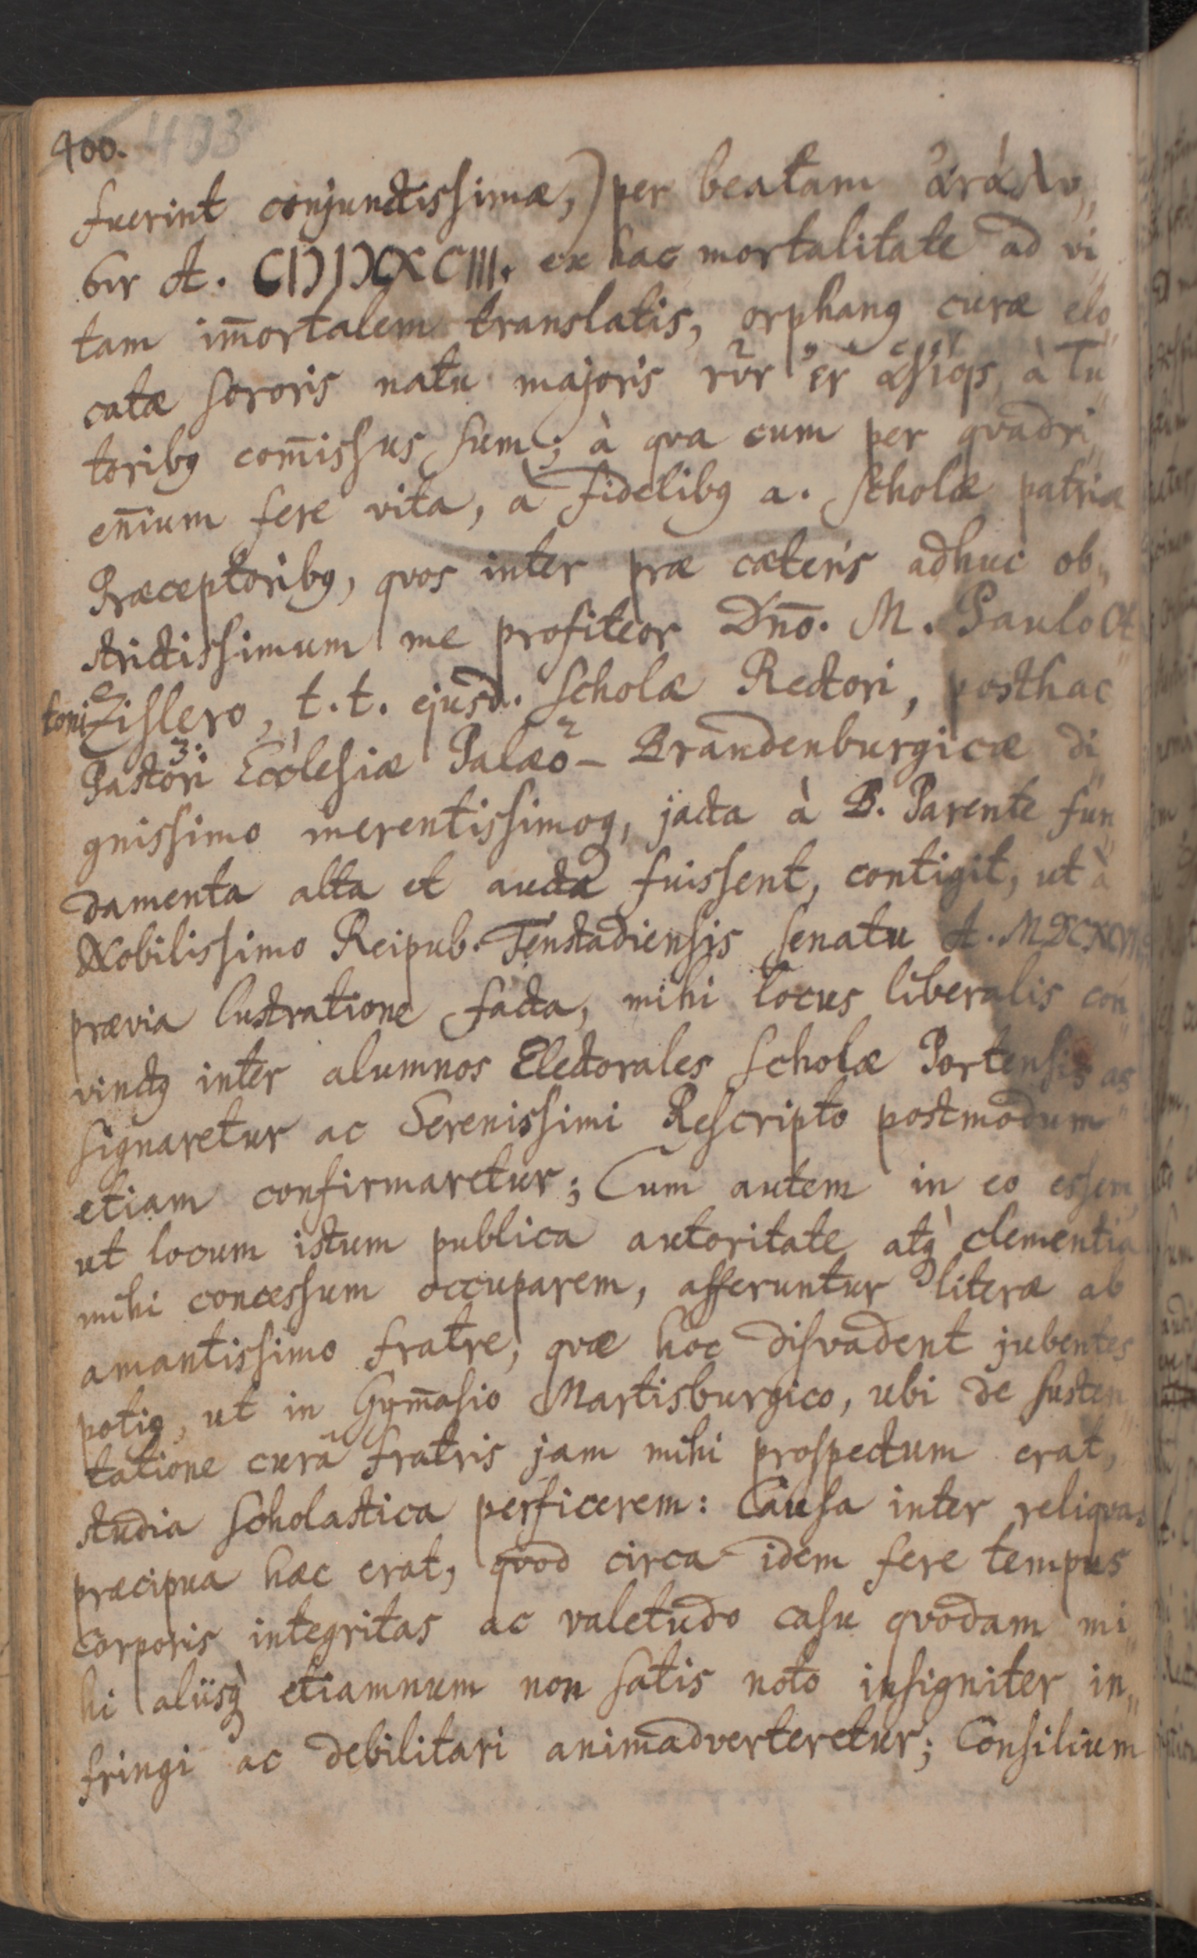 400. 403
fuerint conjunctissimæ,) per beatam ἀνάλυ„
σιν A. CIↃIↃXXCIII. ex hac mortalitate ad vi„
tam im̄ortalem translatis, orphanꝰ curæ elo„
catæ sororis natu majoris νῦν ἐν ἁγίοις, à Tu„
toribꝰ com̄issus sum; à qva cum per qvadri„
en̄ium fere vita, à fidelibꝰ a. scholæ patriæ
Præceptoribꝰ, qvos inter præ cæteris adhuc ob„
strictissimum me profiteor Dn̄o. M. Paulo Ot„
toni Zislero, t. t. ejusd. scholæ Rectori, posthac
Pastori Ecclesiæ Palæo-Brandenburgicæ di„
gnissimo merentissimoq, jacta à B. Parente fun„
damenta alta et aucta fuissent, contigit, ut à
Nobilissimo Reipub. Tenstadiensis senatu A.
prævia lustratione facta, mihi locus liberalis con„
victꝰ inter alumnos Electorales scholæ Portensis as„
signaretur ac Serenissimi Rescripto postmodum
etiam confirmaretur; Cum autem in eo essem,
ut locum istum publica autoritate atq̀ clementia
mihi concessum occuparem, afferuntur literæ ab
amantissimo fratre, qvæ hoc disvadent jubentes
potiꝰ, ut in Gym̄asio Martisburgico, ubi de susten„
tatione curâ fratris jam mihi prospectum erat,
studia scholastica perficerem: Causa inter reliqvas
præcipua hæc erat, qvod circa idem fere tempus
corporis integritas ac valetudo casu qvodam mi„
hi aliisq̀ etiamnum non satis noto insigniter in„
fringi ac debilitari animadverteretur; Consilium